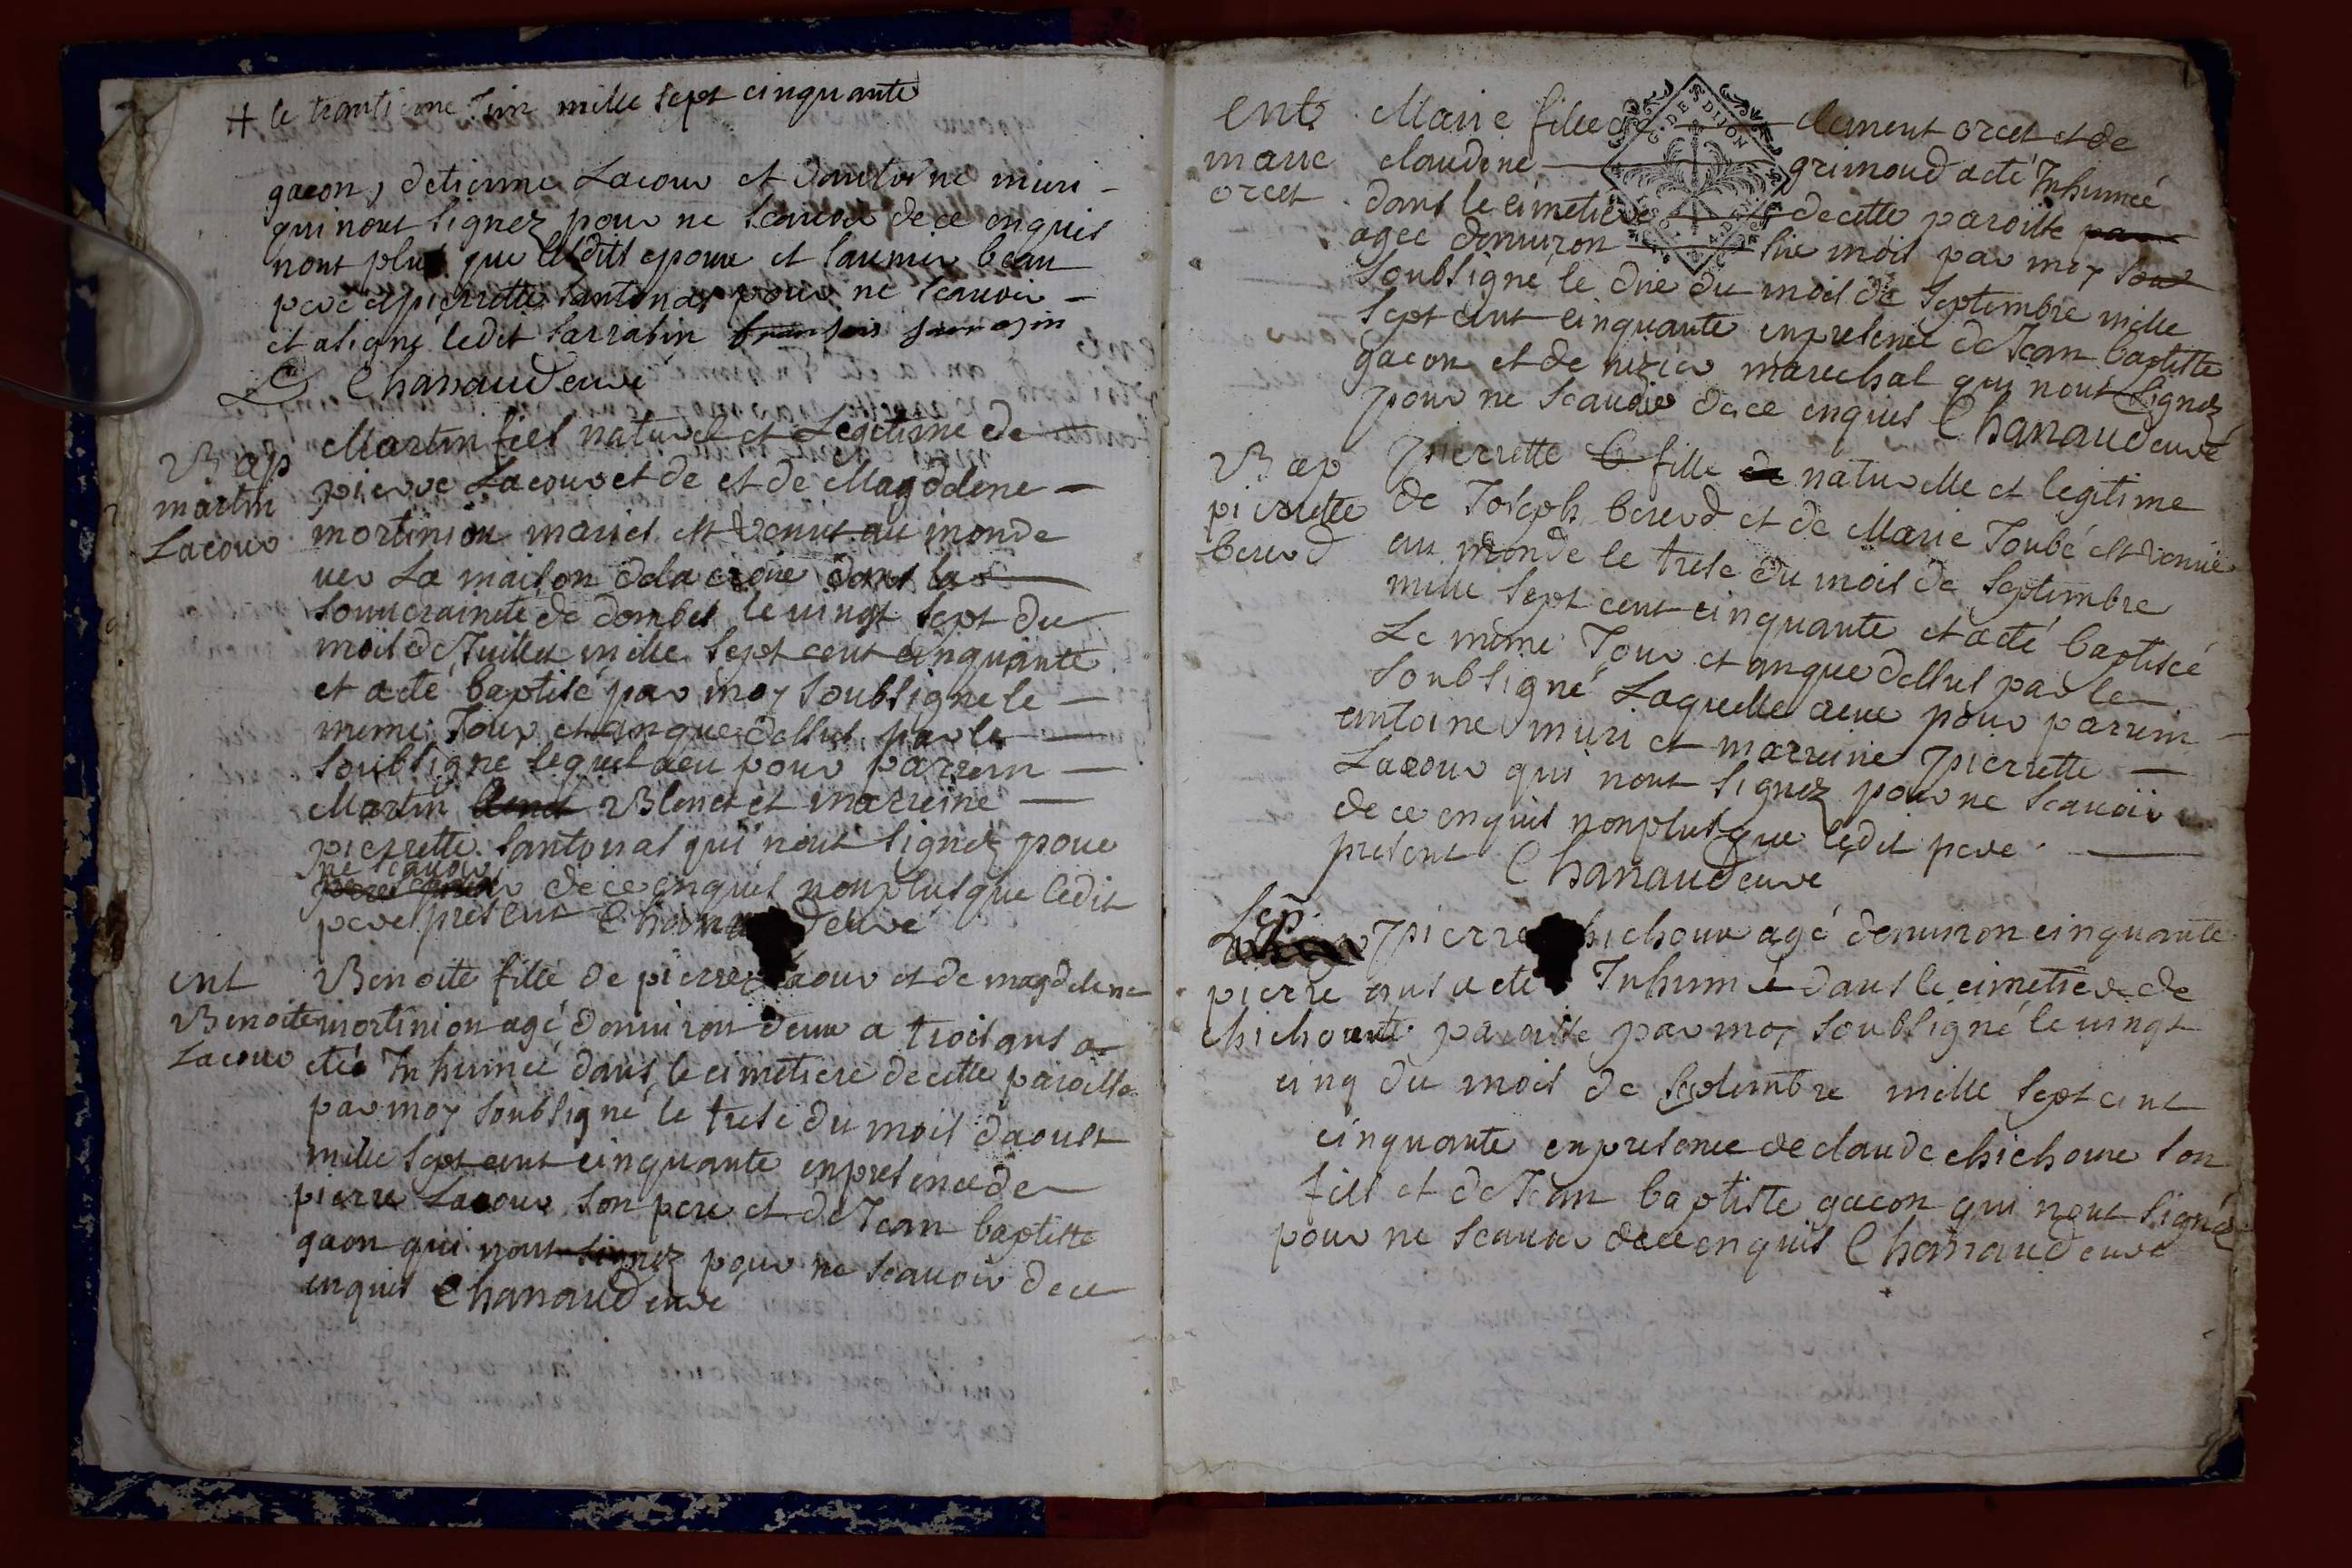 # le trantieme Iuin mille sept cinquante
gacon, detienne Lacour et dantoine muri -
qui nont signez pour ne scauoir de ce enquis
nont plus que lesdits epoux et laumir beau
pere et pierrette santonas pour ne scauoir -
et a signé ledit sarrasin fransois sarrasin
Chanaud curé
Bap
martin
Lacour
Martin fils naturel et Legitime de
pierre Lacour et de et de Magdelene -
mortinion mariés est venus au monde
uer La maison de la croix dans la
souueraineté de dombes le uingt sept du
mois de Iuillet mille sept cent cinquante
et a eté baptisé par moy soubsigné le -
meme Iour et an que dessus par le -
soubsigné lequel a eu pour parrein -
Martin Benet Blenet et marreine -
pierrette santonas qui nont signez pour
ne scauoir
de ce enquis nonplus que ledit
pere present Chanaud curé
ent
Benoite
Lacour
Benoite fille de pierre Lacour et de magdelene
mortinion agé denuiron deux a trois ans a
eteé Inhumeé dans le cimetiere de cette paroisse
par moy soubsigné le trese du mois daoust
mille sept cent cinquante en presence de
pierre Lacour son pere et de Iean baptiste
gaon qui nont signez pour ne scauoir de ce
enquis Chanaud curé
G. DE DIJON
ent
marie
orcet
Marie fille de clement orcet et de
claudine grimoud a eté Inhumeé
dans le cimetiere de cette paroisse par
ageé denuiron six mois par moy sous
soubsigné le dix du mois de septembre mille
sept cent cinquante en presence de Iean baptiste
gacon et de nizier marechal qui nont signez
pour ne scauoir de ce enquis Chanaud curé
Bap
pierrette
bererd
pierrette fille de naturelle et legitime
de Ioseph bererd et de Marie Ioubé est venue
au monde le trese du mois de septembre
mille sept cent cinquante et a eté baptiseé
Le meme Iour et an que dessus par le
soubsigné Laquelle a eue pour parrein -
antoine muri et marreine pierrette -
Lacour qui nont signez pour ne scauoir
de ce enquis nonplus que ledit pere
present Chanaud curé
Sep.
pierre
chichoux
pierre chichoux agé denuiron cinquante
ans a eté Inhumé dans le cimetiere de
cette paroisse par moy soubsigné le uingt
cinq du mois de septembre mille sept cent
cinquante en presence de claude chichoux son
fils et de Iean baptiste gacon qui nont signé
pour ne scauoir de ce enquis Chanaud curé